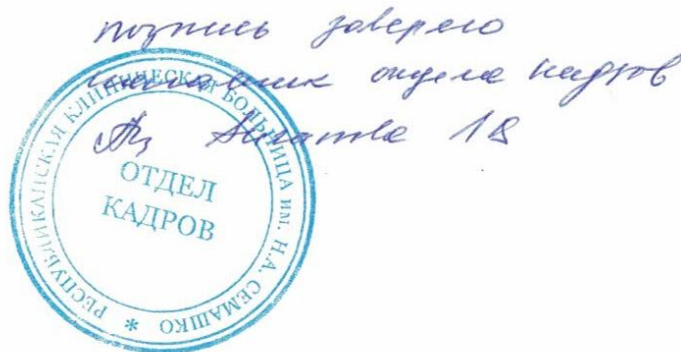 подпись заверяю
начальник отдела кадров
РЕСПУБЛИКАНСКАЯ КЛИНИЧЕСКАЯ БОЛЬНИЦА им. Н.А. СЕМАШКО *
ОТДЕЛ
КАДРОВ